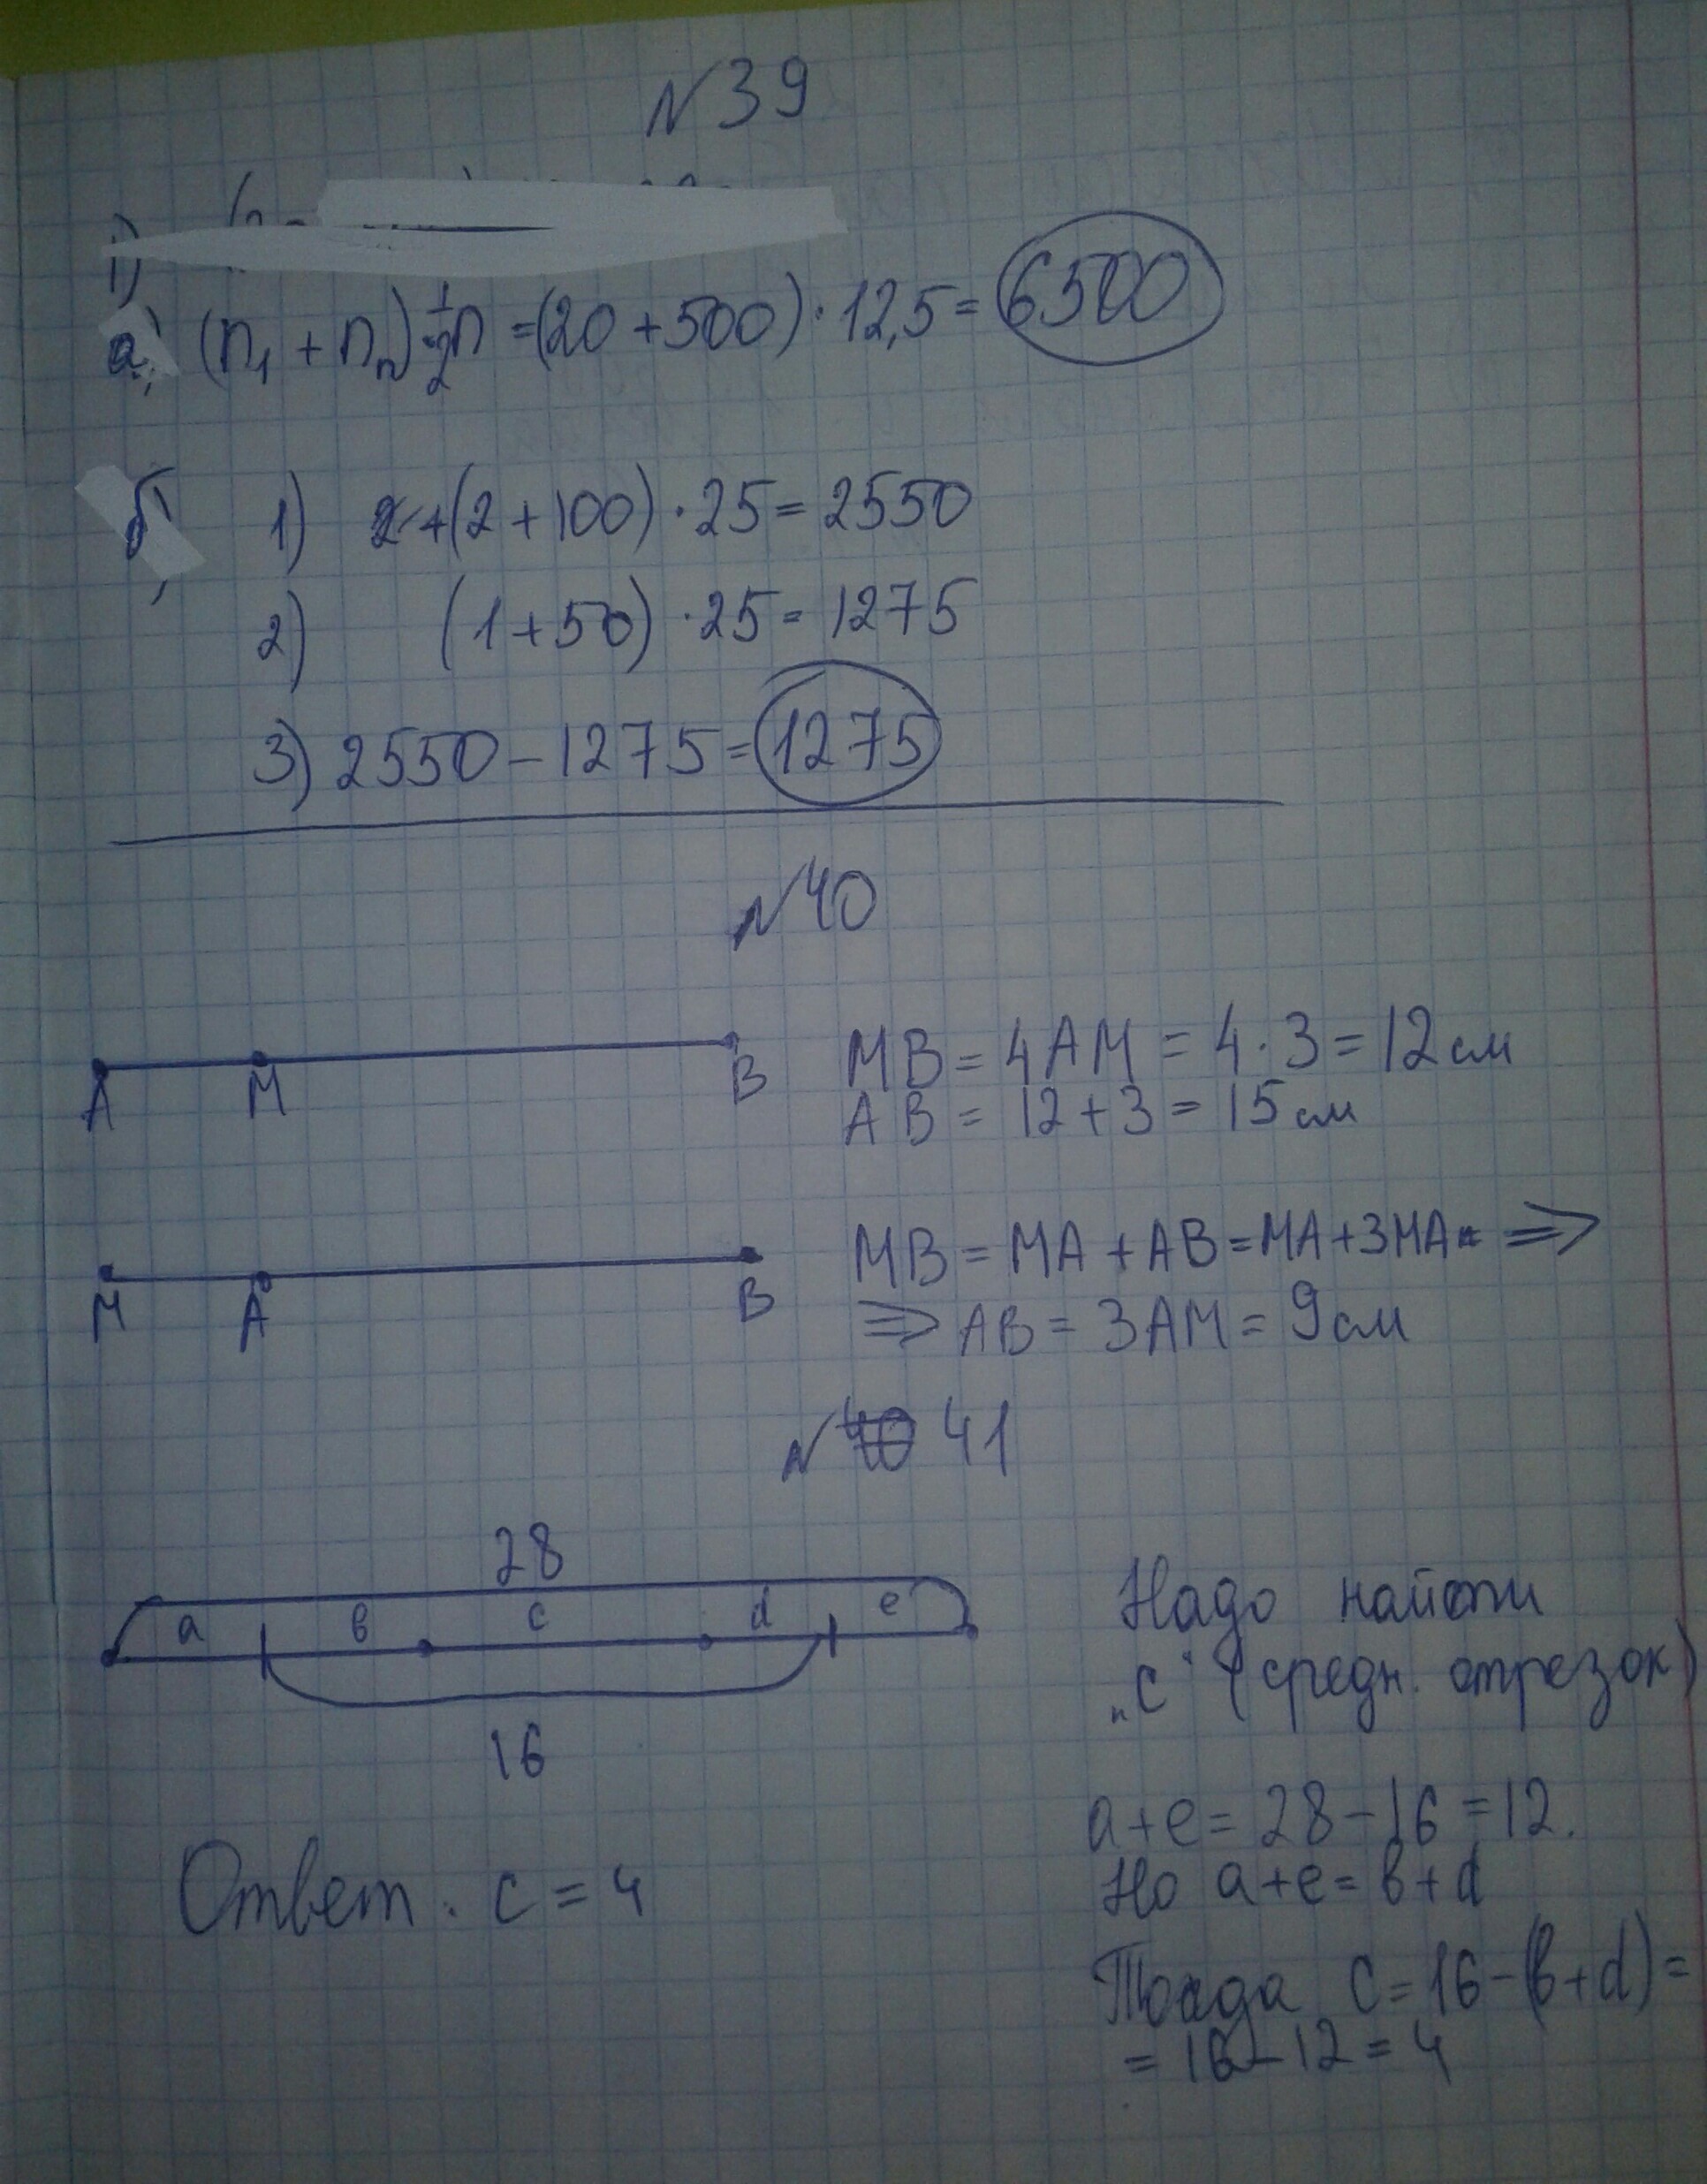 №39
1)
а) (n₁ + nₙ)·½n = (20 + 500) · 12,5 = 6500
б) 1) (2 + 100) · 25 = 2550
2) (1 + 50) · 25 = 1275
3) 2550 - 1275 = 1275
№40
A M B
MB = 4AM = 4 · 3 = 12 см
AB = 12 + 3 = 15 см
M A B
MB = MA + AB = MA + 3MA ⇒
⇒ AB = 3AM = 9 см
№ 41
28
a в c d e
16
Надо найти
„c" (средн. отрезок)
a + e = 28 - 16 = 12.
Но a + e = в + d
Тогда c = 16 - (в + d) =
= 16 - 12 = 4
Ответ: c = 4